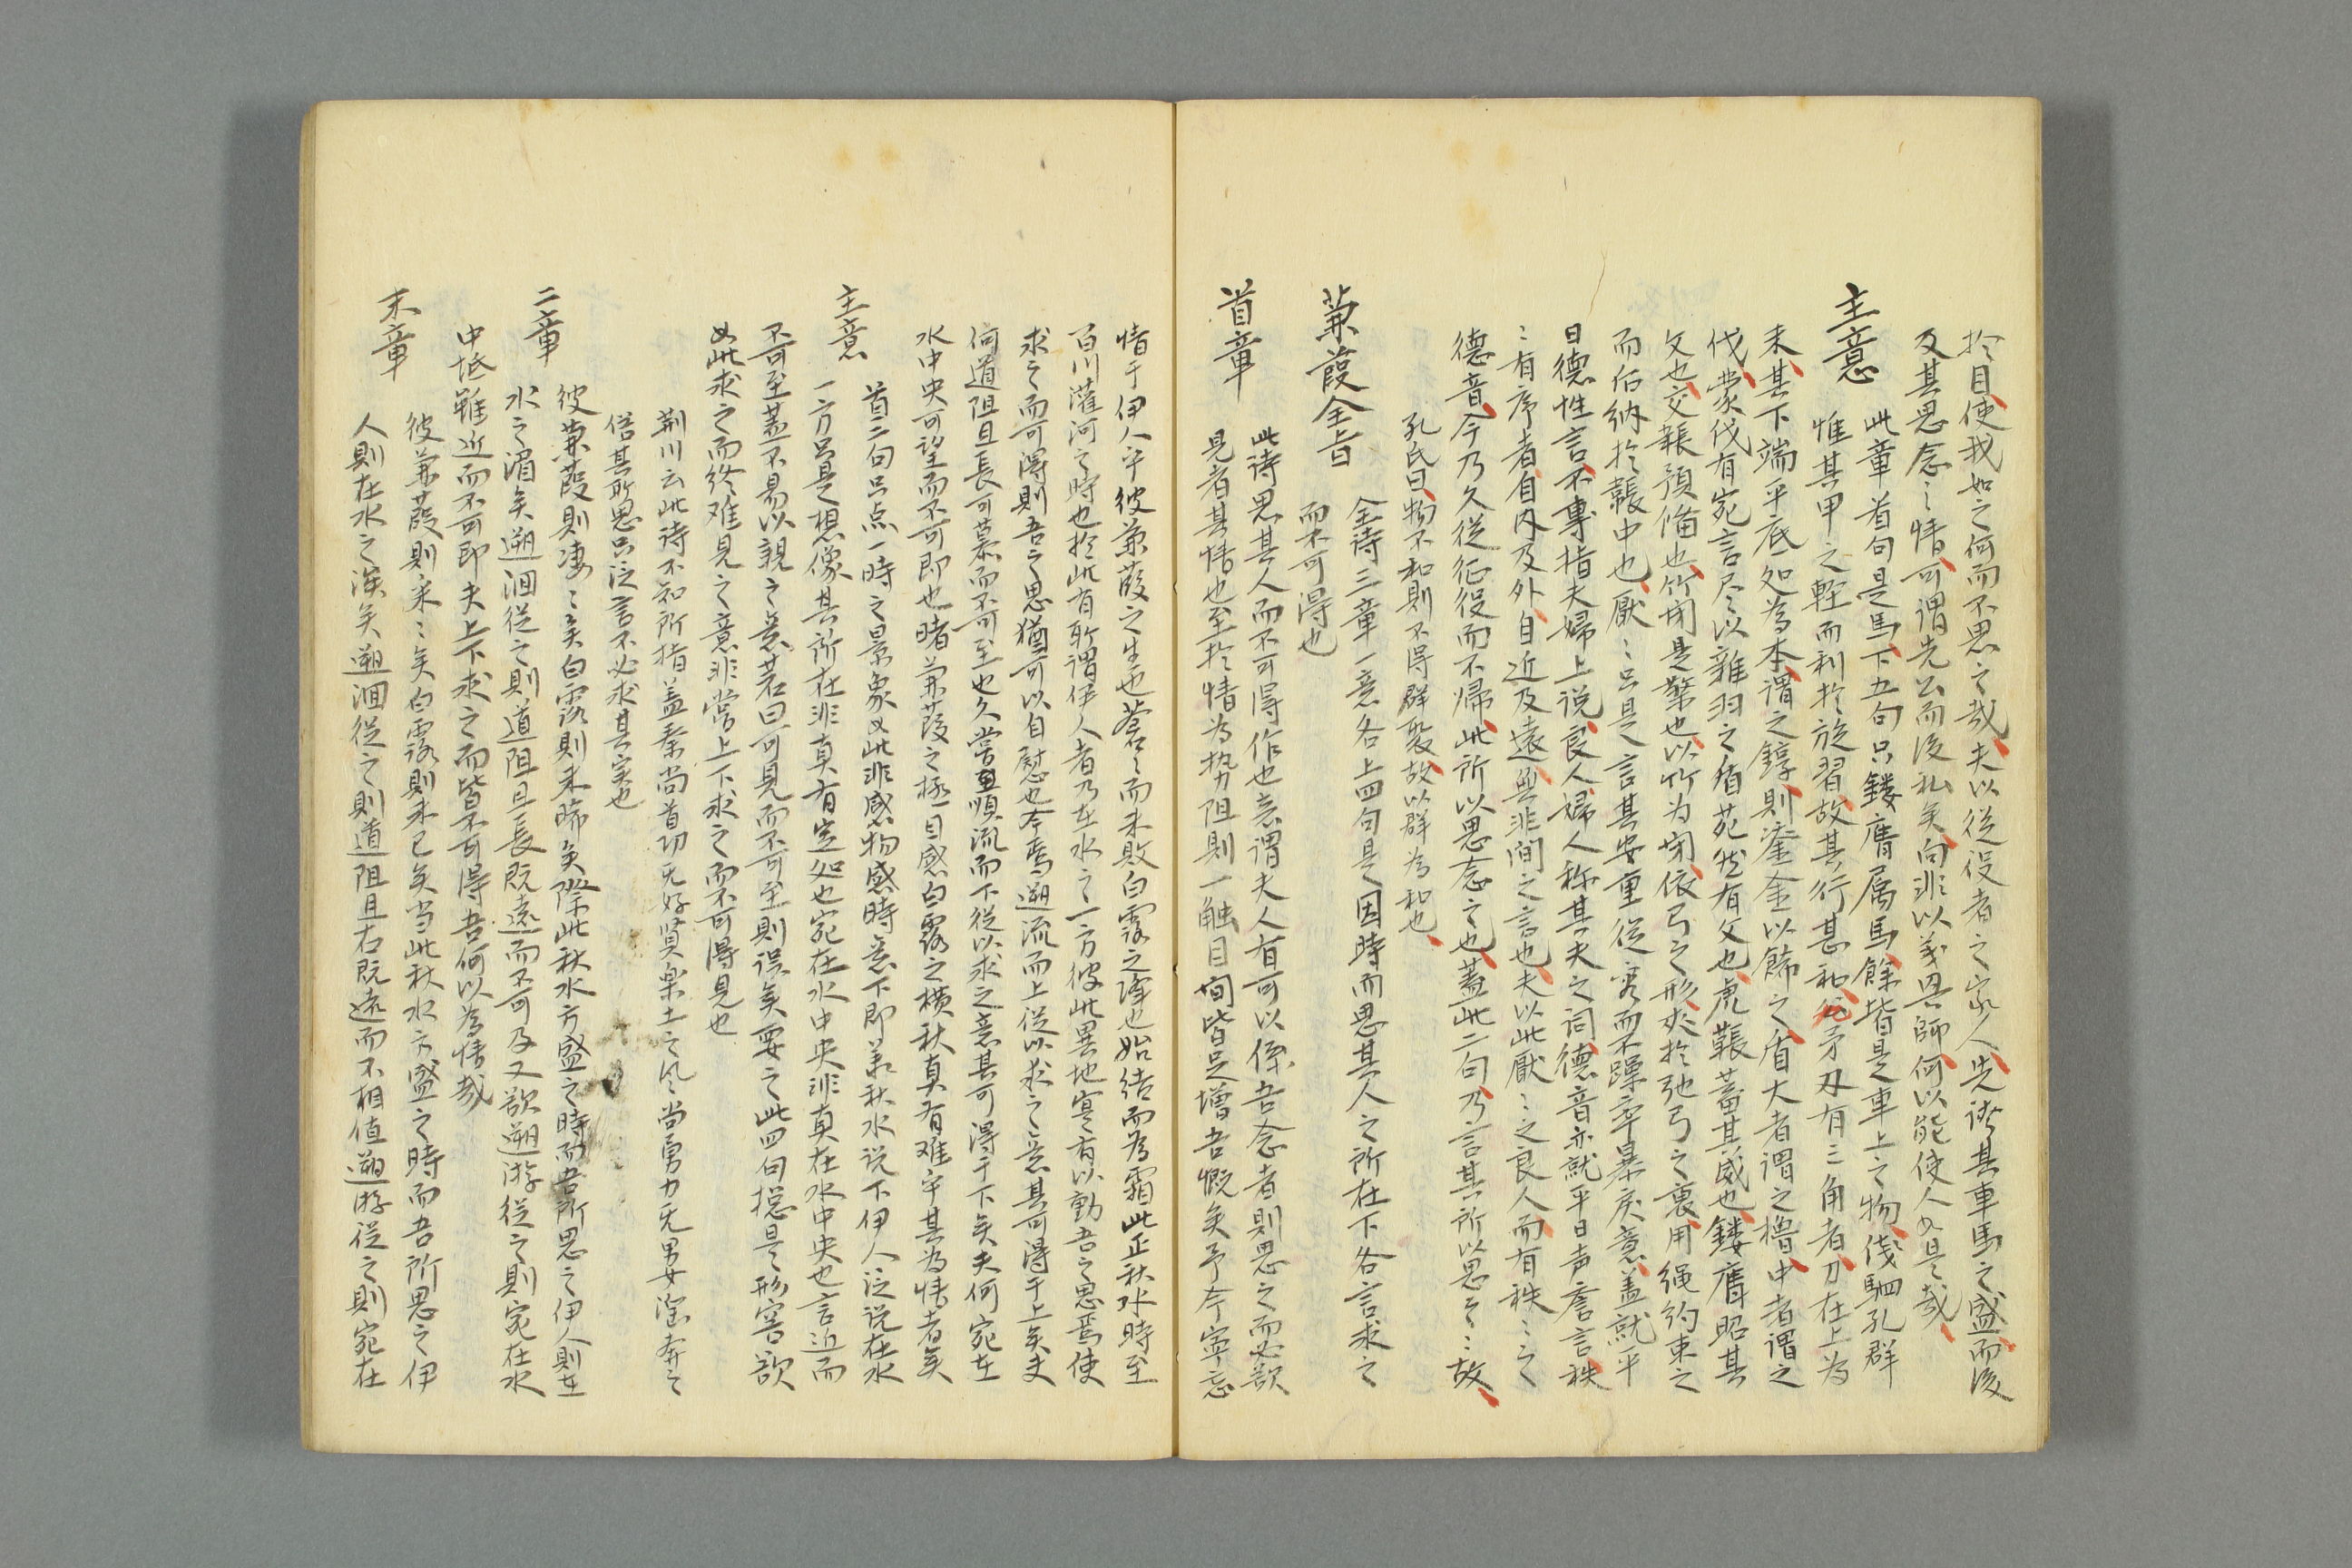 於目使我如之何而不思之哉夫以從役者之家人先誇其車馬之盛而後
及其思念之情可謂先公而後私矣向非以義興師何以能使人如是哉
主意
此章首句是馬下五句只鏤膺属馬餘皆是車上之物俴駟孔群
惟其甲之輕而利於旋習故其行甚和厹矛刃有三角者刀在上為
末其下端平底処為本謂之錞則鋈金以餙之盾大者謂之櫓中者謂之
伐蒙伐有宛言尽以雜羽之盾苑然有文也虎韔蓄其威也鏤膺昭其
文也交韔預俻也竹閉是檠也以竹为閉依弓之形於弛弓之裏用绳約束之
而佰納於韔中也厭〻只是言其安重從容而不躁率暴戾意盖就平
日德性言不專指夫婦上说良人婦人称其夫之词德音亦就平日声誉言秩
〻有序者自内及外自近及遠無非间之言也夫以此厭〻之良人而有秩〻之
德音今乃久從征役而不归此所以思念之也蓋此二句乃言其所以思之〻故
孔氏曰物不和則不得群聚故以群為和也
蒹葭全旨
全诗三章一意各上四句是因時而思其人之所在下各言求之
而不可得也
首章
此诗思其人而不可得作也意謂夫人有可以係吾念者則思之而必欲
見者其情也至於情為势阻則一触目间皆足增吾慨矣予今寧忘
情于伊人乎彼蒹葭之生也蒼〻而未敗白露之降也始结而为霜此正秋水時至
百川灌河之時也於此有所謂伊人者乃在水之一方彼此異地寔有以動吾之思焉使
求之而可得則吾之思猶可以自慰也今焉遡流而上從以求之意其可得于上矣夫
何道阻且長可慕而不可至也久嘗顺流而下從以求之意其可得于下矣夫何宛在
水中央可望而不可即也睹蒹葭之極目感白露之横秋真有难乎其為情者矣
主意
首二句只点一時之景象如此非感物感時意下即为秋水说下伊人泛说在水
一方只是想像其所在非真有定処也宛在水中央非真在水中央也言近而
不可至蓋不易以親之意若曰可見而不可至則误矣要之此四句捴是形容欲
如此求之而终难見之意非嘗上下求之而不可得見也
荆川云此诗不知所指盖秦尚首功无好贤楽土之风尚勇力无男女滛奔之
俗其所思只泛言不必求其实也
二章
彼蒹葭則凄〻矣白露則未晞矣際此秋水方盛之時而吾所思之伊人則在
水之湄矣遡洄從之則道阻且長既遠而不可及又欲遡游從之則宛在水
中坻雖近而不可即夫上下求之而皆不可得吾何以為情哉
末章
彼蒹葭則采〻矣白露則未已矣当此秋水方盛之時而吾所思之伊
人則在水之涘矣遡洄從之則道阻且右既遠而不相值遡游從之則宛在